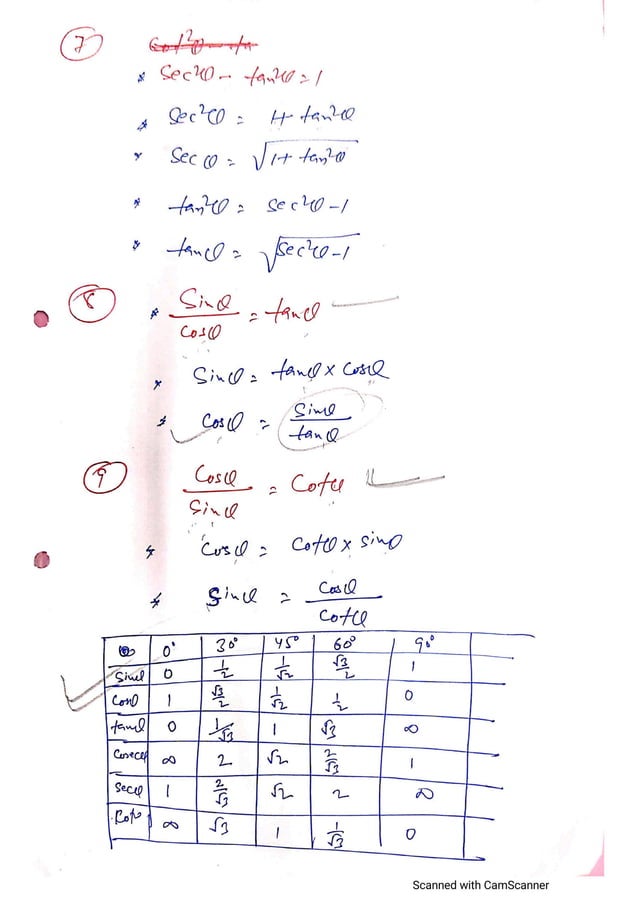 7
* Sec²θ - tan²θ = 1
* Sec²θ = 1 + tan²θ
* Sec θ = √1 + tan²θ
* tan²θ = sec²θ - 1
* tanθ = √sec²θ - 1
8
* Sinθ/cosθ = tanθ
* Sinθ = tanθ × cosθ
* Cosθ = Sinθ/tanθ
9
Cosθ/Sinθ = Cotθ
* Cosθ = Cotθ × sinθ
* Sinθ = Cosθ/Cotθ
θ 0° 30° 45° 60° 90°
Sinθ 0 1/2 1/√2 √3/2 1
Cosθ 1 √3/2 1/√2 1/2 0
tanθ 0 1/√3 1 √3 ∞
Cosecθ ∞ 2 √2 2/√3 1
Secθ 1 2/√3 √2 2 ∞
Cotθ ∞ √3 1 1/√3 0
Scanned with CamScanner